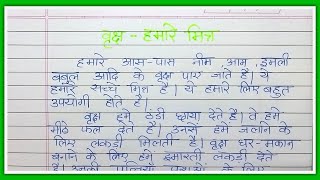 वृक्ष - हमारे मित्र
हमारे आस-पास नीम, आम, इमली
बबूल आदि के वृक्ष पाए जाते हैं। ये
हमारे सच्चे मित्र हैं। ये हमारे लिए बहुत
उपयोगी होते हैं।
वृक्ष हमें ठंडी छाया देते हैं। वे हमे
मीठे फल देते हैं। उनसे हमें जलाने के
लिए लकड़ी मिलती है। वृक्ष घर-मकान
बनाने के लिए हमें इमारती लकड़ी देते